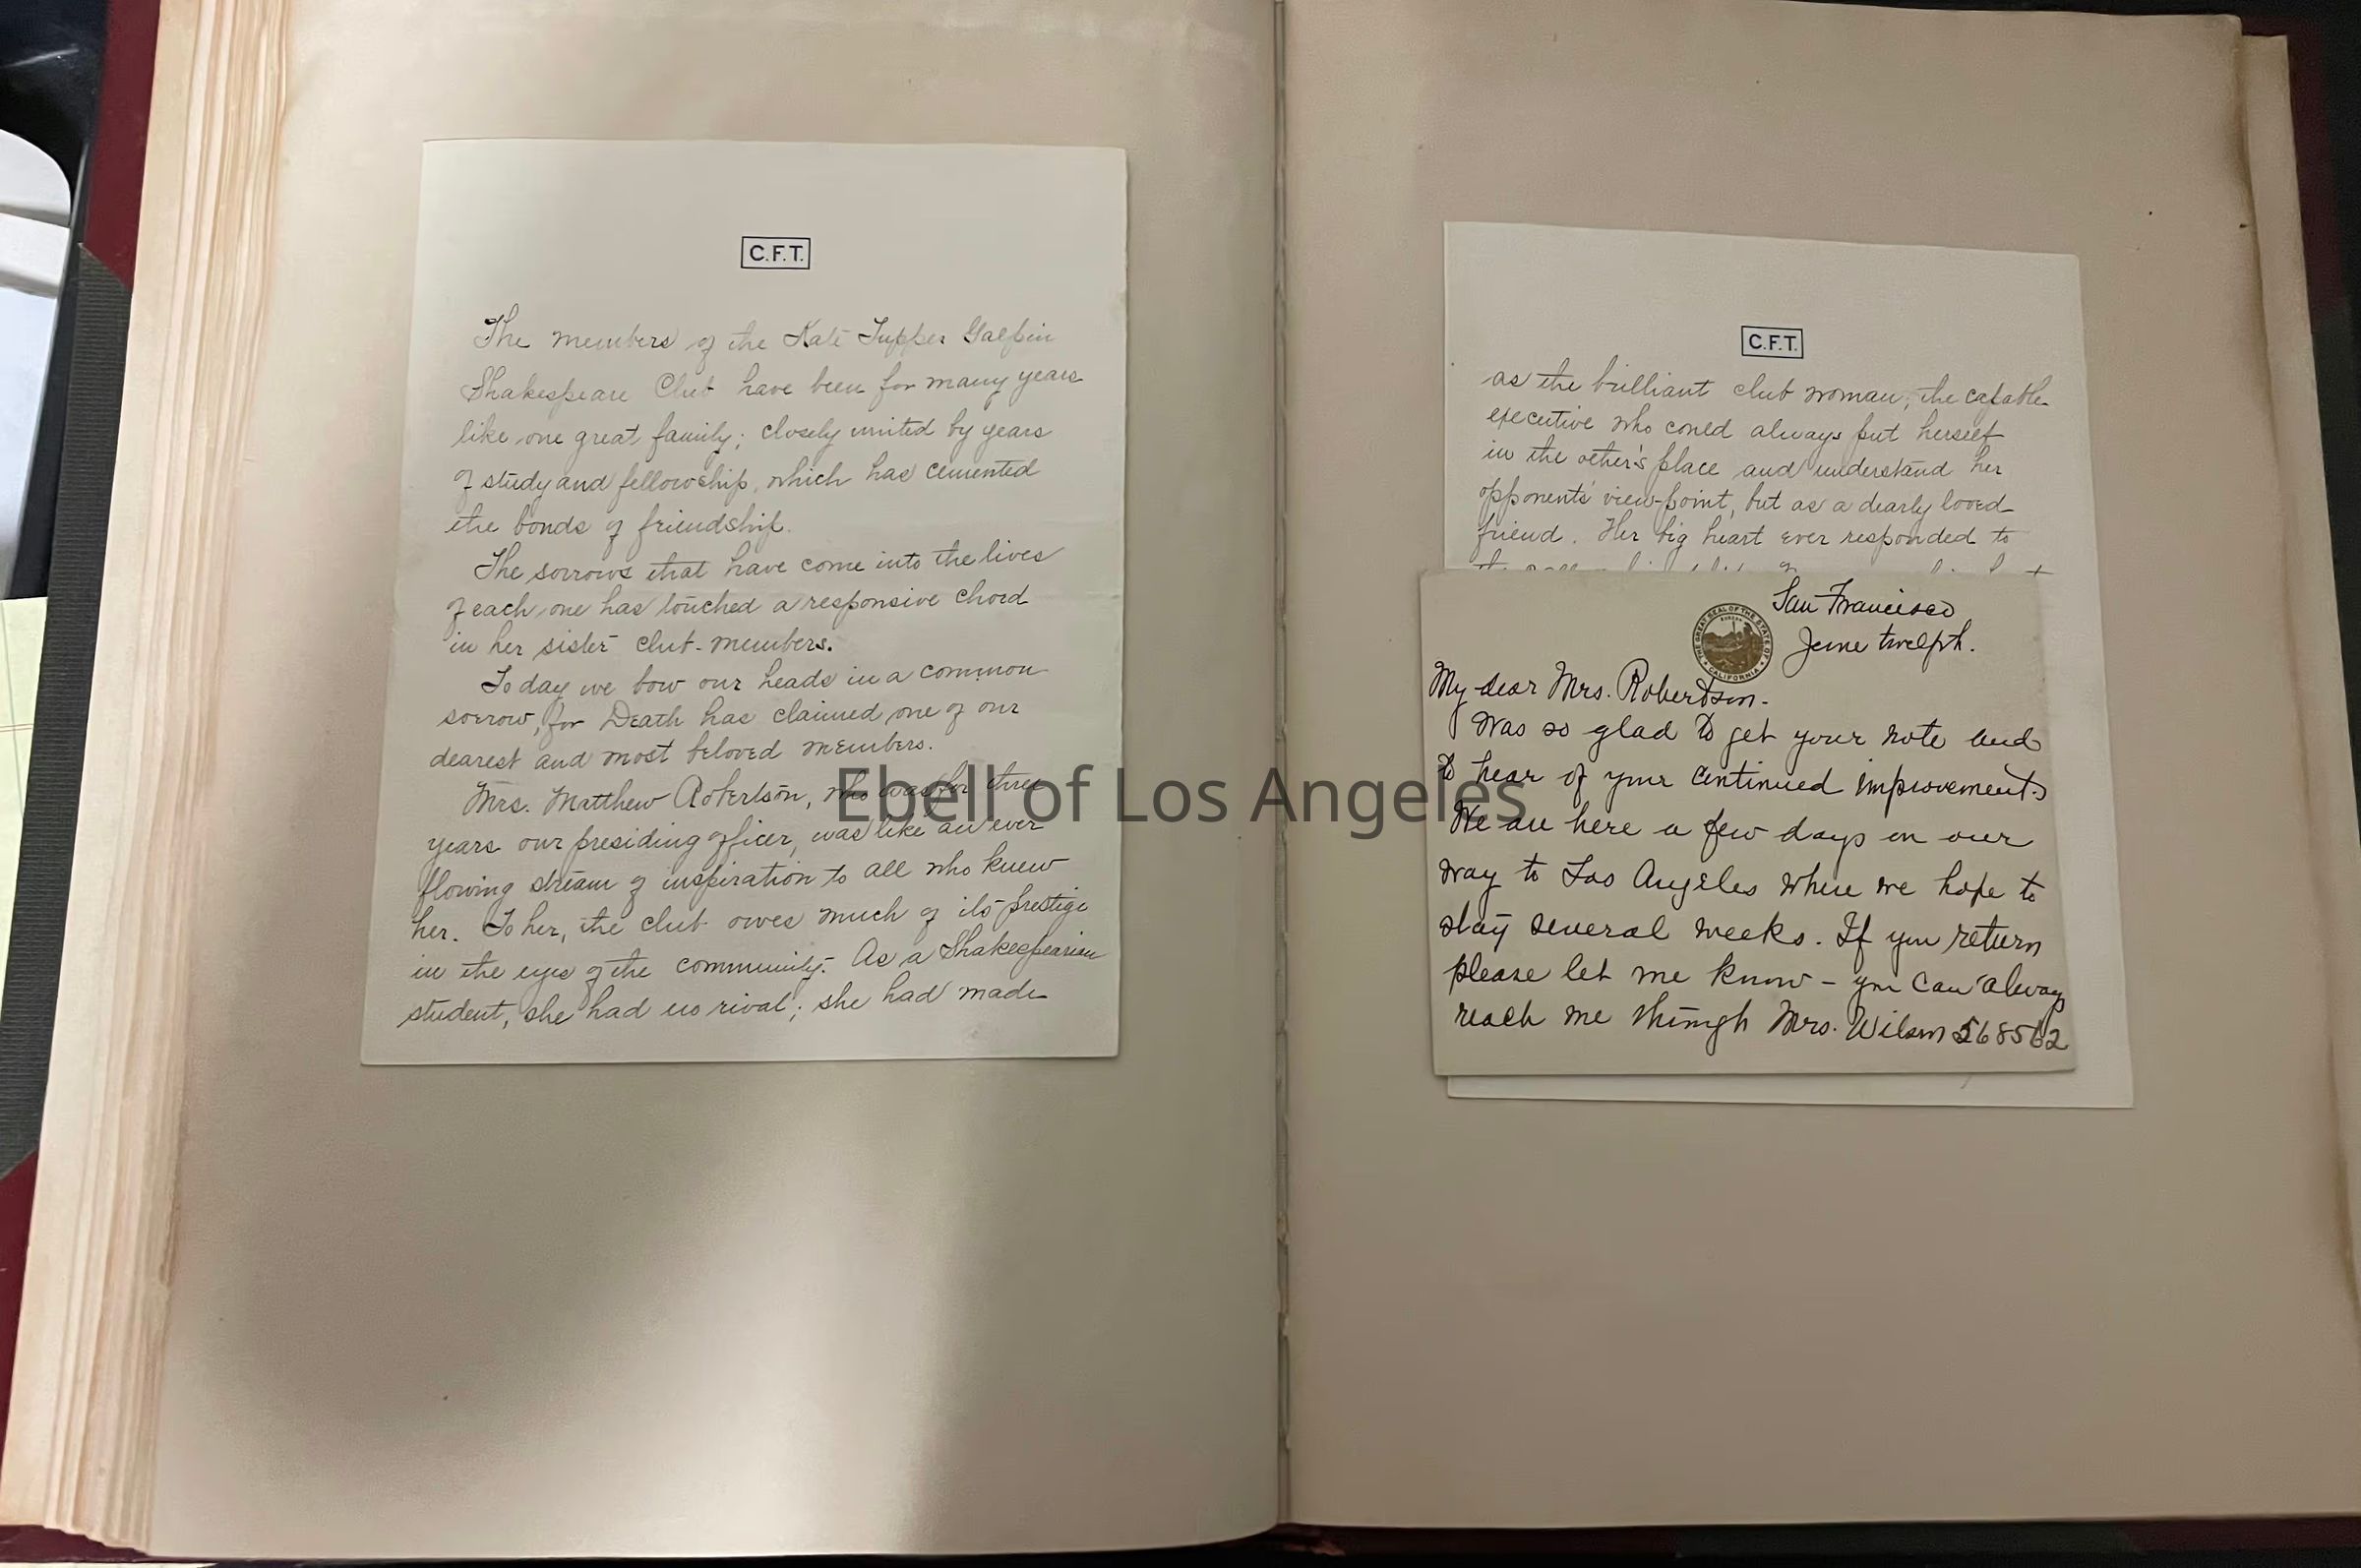 C.F.T.
The members of the Kate Tupper Galpin
Shakespeare Club have been for many years
like one great family; closely united by years
of study and fellowship, which has cemented
the bonds of friendship.
The sorrows that have come into the lives
of each one has touched a responsive chord
in her sister club-members.
Today we bow our heads in a common
sorrow, for Death has claimed one of our
dearest and most beloved members.
Mrs. Matthew Robertson, who was for three
years our presiding officer, was like an ever
flowing stream of inspiration to all who knew
her. To her, the club owes much of its prestige
in the eyes of the community. As a Shakespearian
student, she had no rival; she had made
C.F.T.
as the brilliant club woman, the capable
executive who could always put herself
in the other's place and understand her
opponents' view-point, but as a dearly loved
friend. Her big heart ever responded to
San Francisco
June twelfth.
THE GREAT SEAL OF THE STATE OF CALIFORNIA
EUREKA
My dear Mrs. Robertson.
Was so glad to get your note and
to hear of your continued improvement.
We are here a few days on our
way to Los Angeles where we hope to
stay several weeks. If you return
please let me know – you can always
reach me through Mrs. Wilson 568562
Ebell of Los Angeles